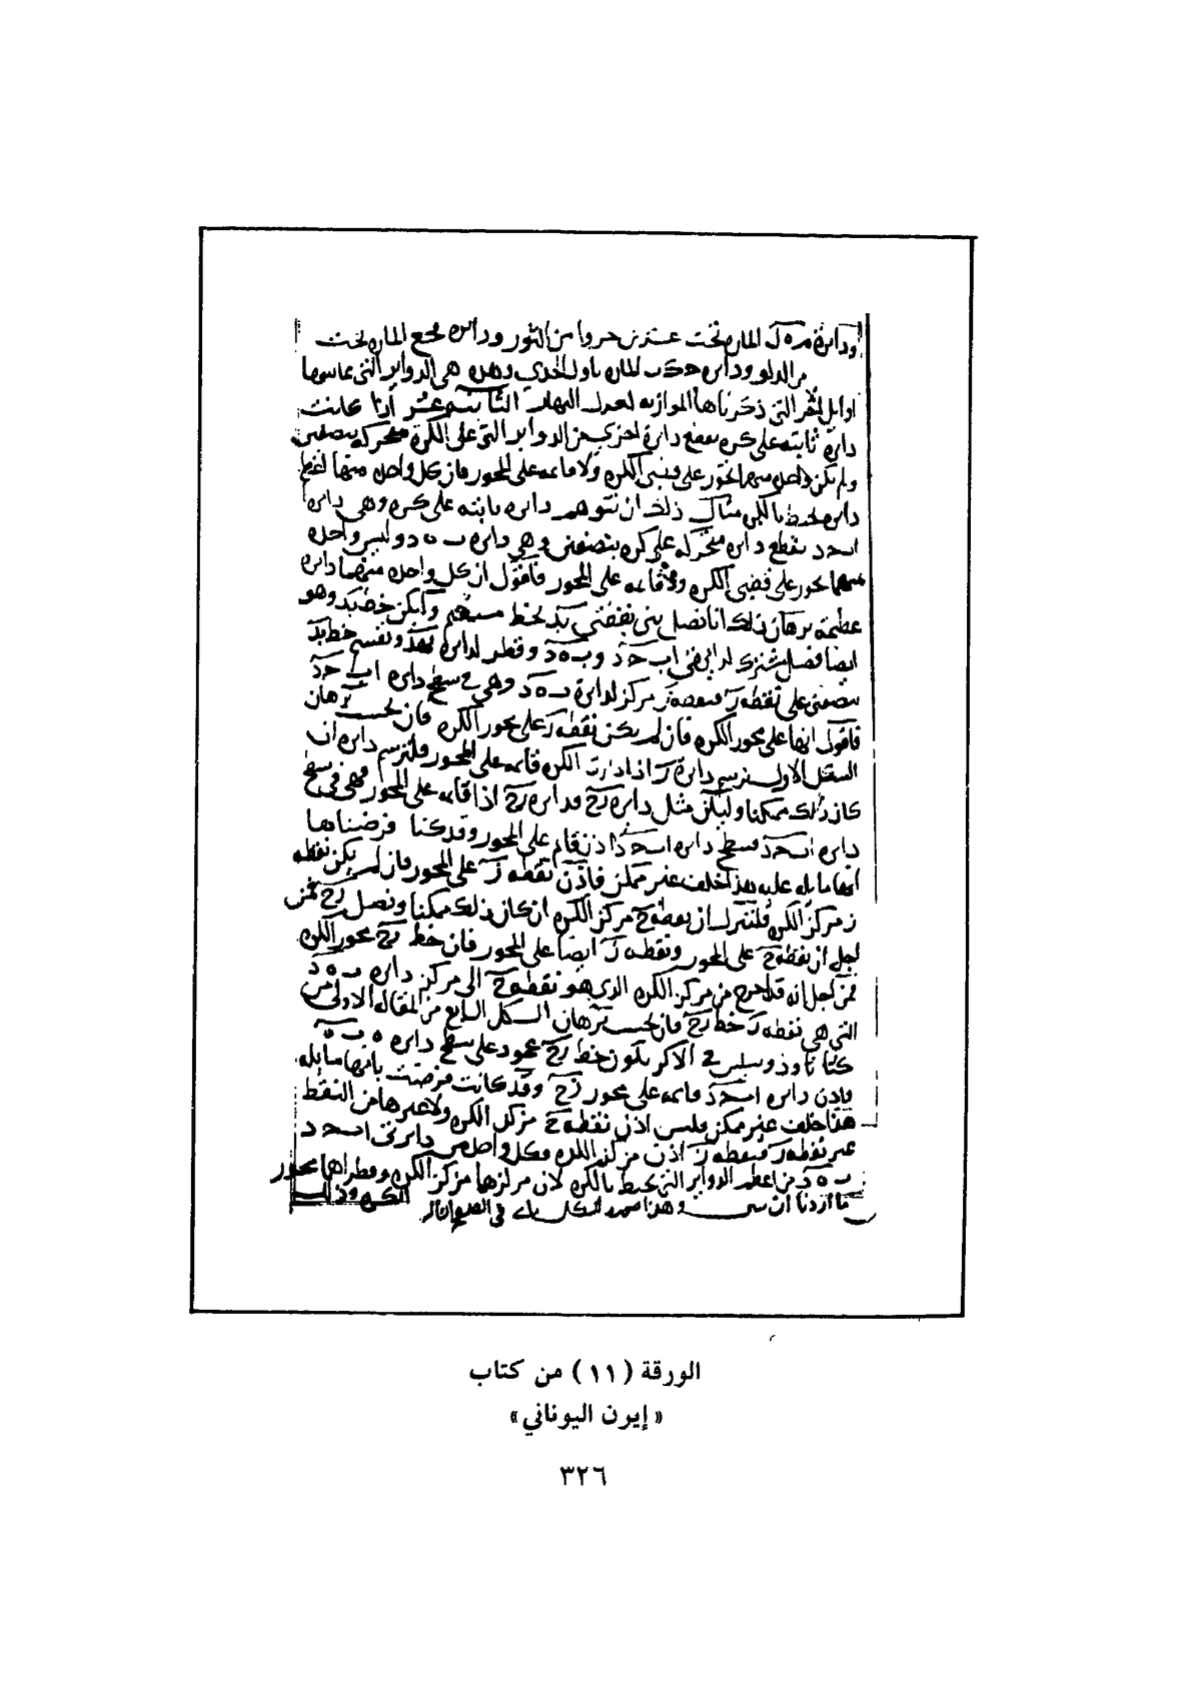 ودائرة م ه ك المارة تحت عشرين جزوا من الثور ودائرة المارة تحت
من الدلو ودائرة المارة باول الجدي وهذه هي الدواير التي تماسها
اوايل التي ذكرناها الموازية لمعدل النهار الثانية عشر اذا كانت
دايرة ثابته على كره تقطع دايرة اخرى من الدواير التي على الكرة متحركه بنصفين
ولم تكن واحدة منهما تجوز على قطبي الكره ولا قايمه على المحور فان كل واحده منهما
دايره تحيط بالكل مثال ذلك ان نتوهم دايره ثابته على كره وهي دايره
ا ب ح د تقطع دايره متحركه على كره بنصفين وهي دايره ب ه د وليس واحده
منهما تجوز على قطبي الكره ولا قايمه على المحور فاقول ان كل واحده منهما دايره
عظيمة برهان ذلك انا نصل بين نقطتي ب د بخط مستقيم وليكن خط ب د وهو
ايضا فصل مشترك لدايرتي ا ب ح د و ب ه د وقطر لدايرة ونقسم خط ب د
بنصفين على نقطة ز فنقطة ز مركز لدايرة ب ه د وهي في سطح دايره ا ب ح د
فاقول انها على محور الكره فان لم يكن نقطه ز على محور الكره فان بحسب برهان
الشكل الاول نرسم دايرة ز اذا دارت الكره قايمه على المحور فلترسم دايره ان
كان ذلك ممكنا وليكن مثل دايره زح فدايره زح اذا قايمه على المحور فهي في سطح
دايره ا ب ح د فسطح دايره ا ب ح د اذن قام على المحور وقد كنا فرضناها
انها مايله عليه هذا خلف غير ممكن فاذن نقطه ز على المحور فان لم يكن نقطه
ز مركز الكره فلننزل ان نقطه ح مركز الكره ان كان ذلك ممكنا ونصل زح فمن
اجل ان نقطه ح على المحور ونقطه ز ايضا على المحور فان خط زح محور الكره
فمن اجل انه قد اخرج من مركز الكره الذي هو نقطه ح الى مركز دايره ب ه د
التي هي نقطه ز خط زح فان بحسب برهان الشكل السابع من المقاله الاولى من
كتاب ثاوذوسيوس في الاكر يكون خط زح عمود على سطح دايره ب ه د
فاذن دايره ا ب ح د قايمه على محور زح وقد كانت فرضت بانها مايله
هذا خلف غير ممكن فليس اذن نقطه ح مركز الكره ولا غيرها من النقط
غير نقطه ز فنقطه ز اذن مركز الكره وكل واحده من دايرتي ا ب ح د
ب ه د من اعظم الدواير التي تحيط بالكره لان مركزها مركز الكره وقطراها محور
الكره وذلك
ما اردنا ان نبين وهذا
الورقة (١١) من كتاب
« إيرن اليوناني »
٣٢٦